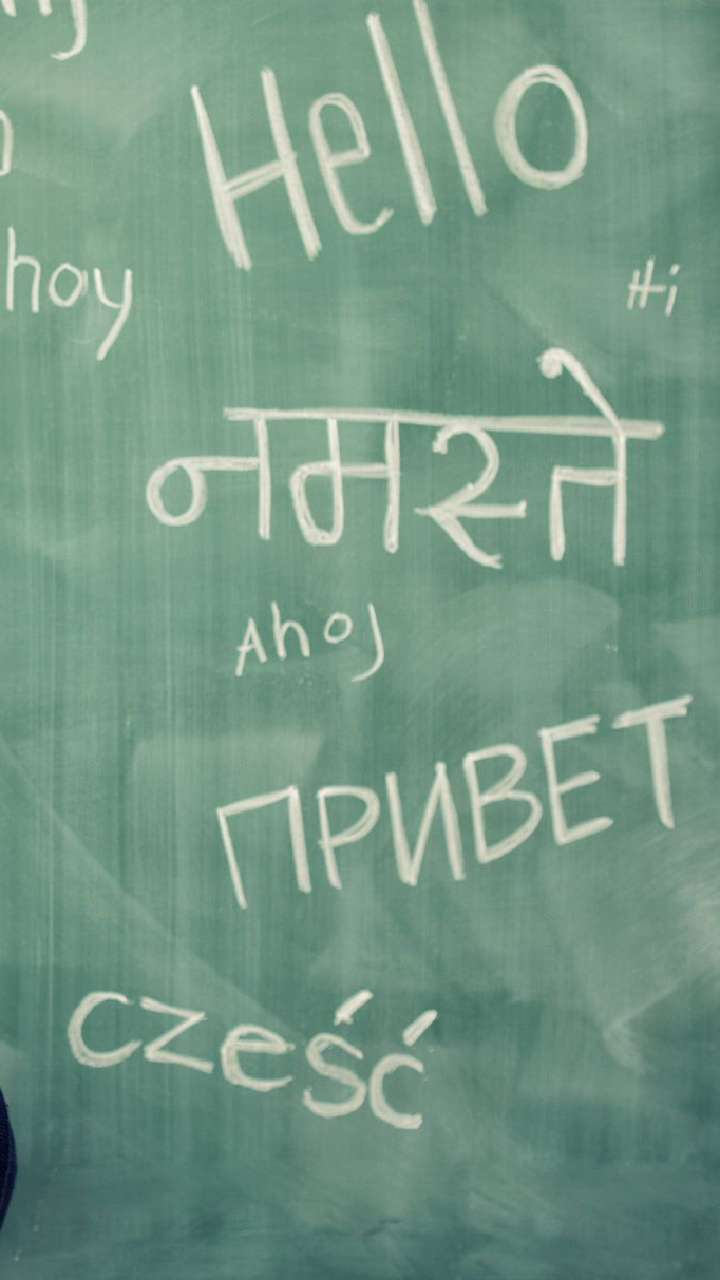 Hello
hoy
Hi
नमस्ते
Ahoj
ПРИВЕТ
cześć